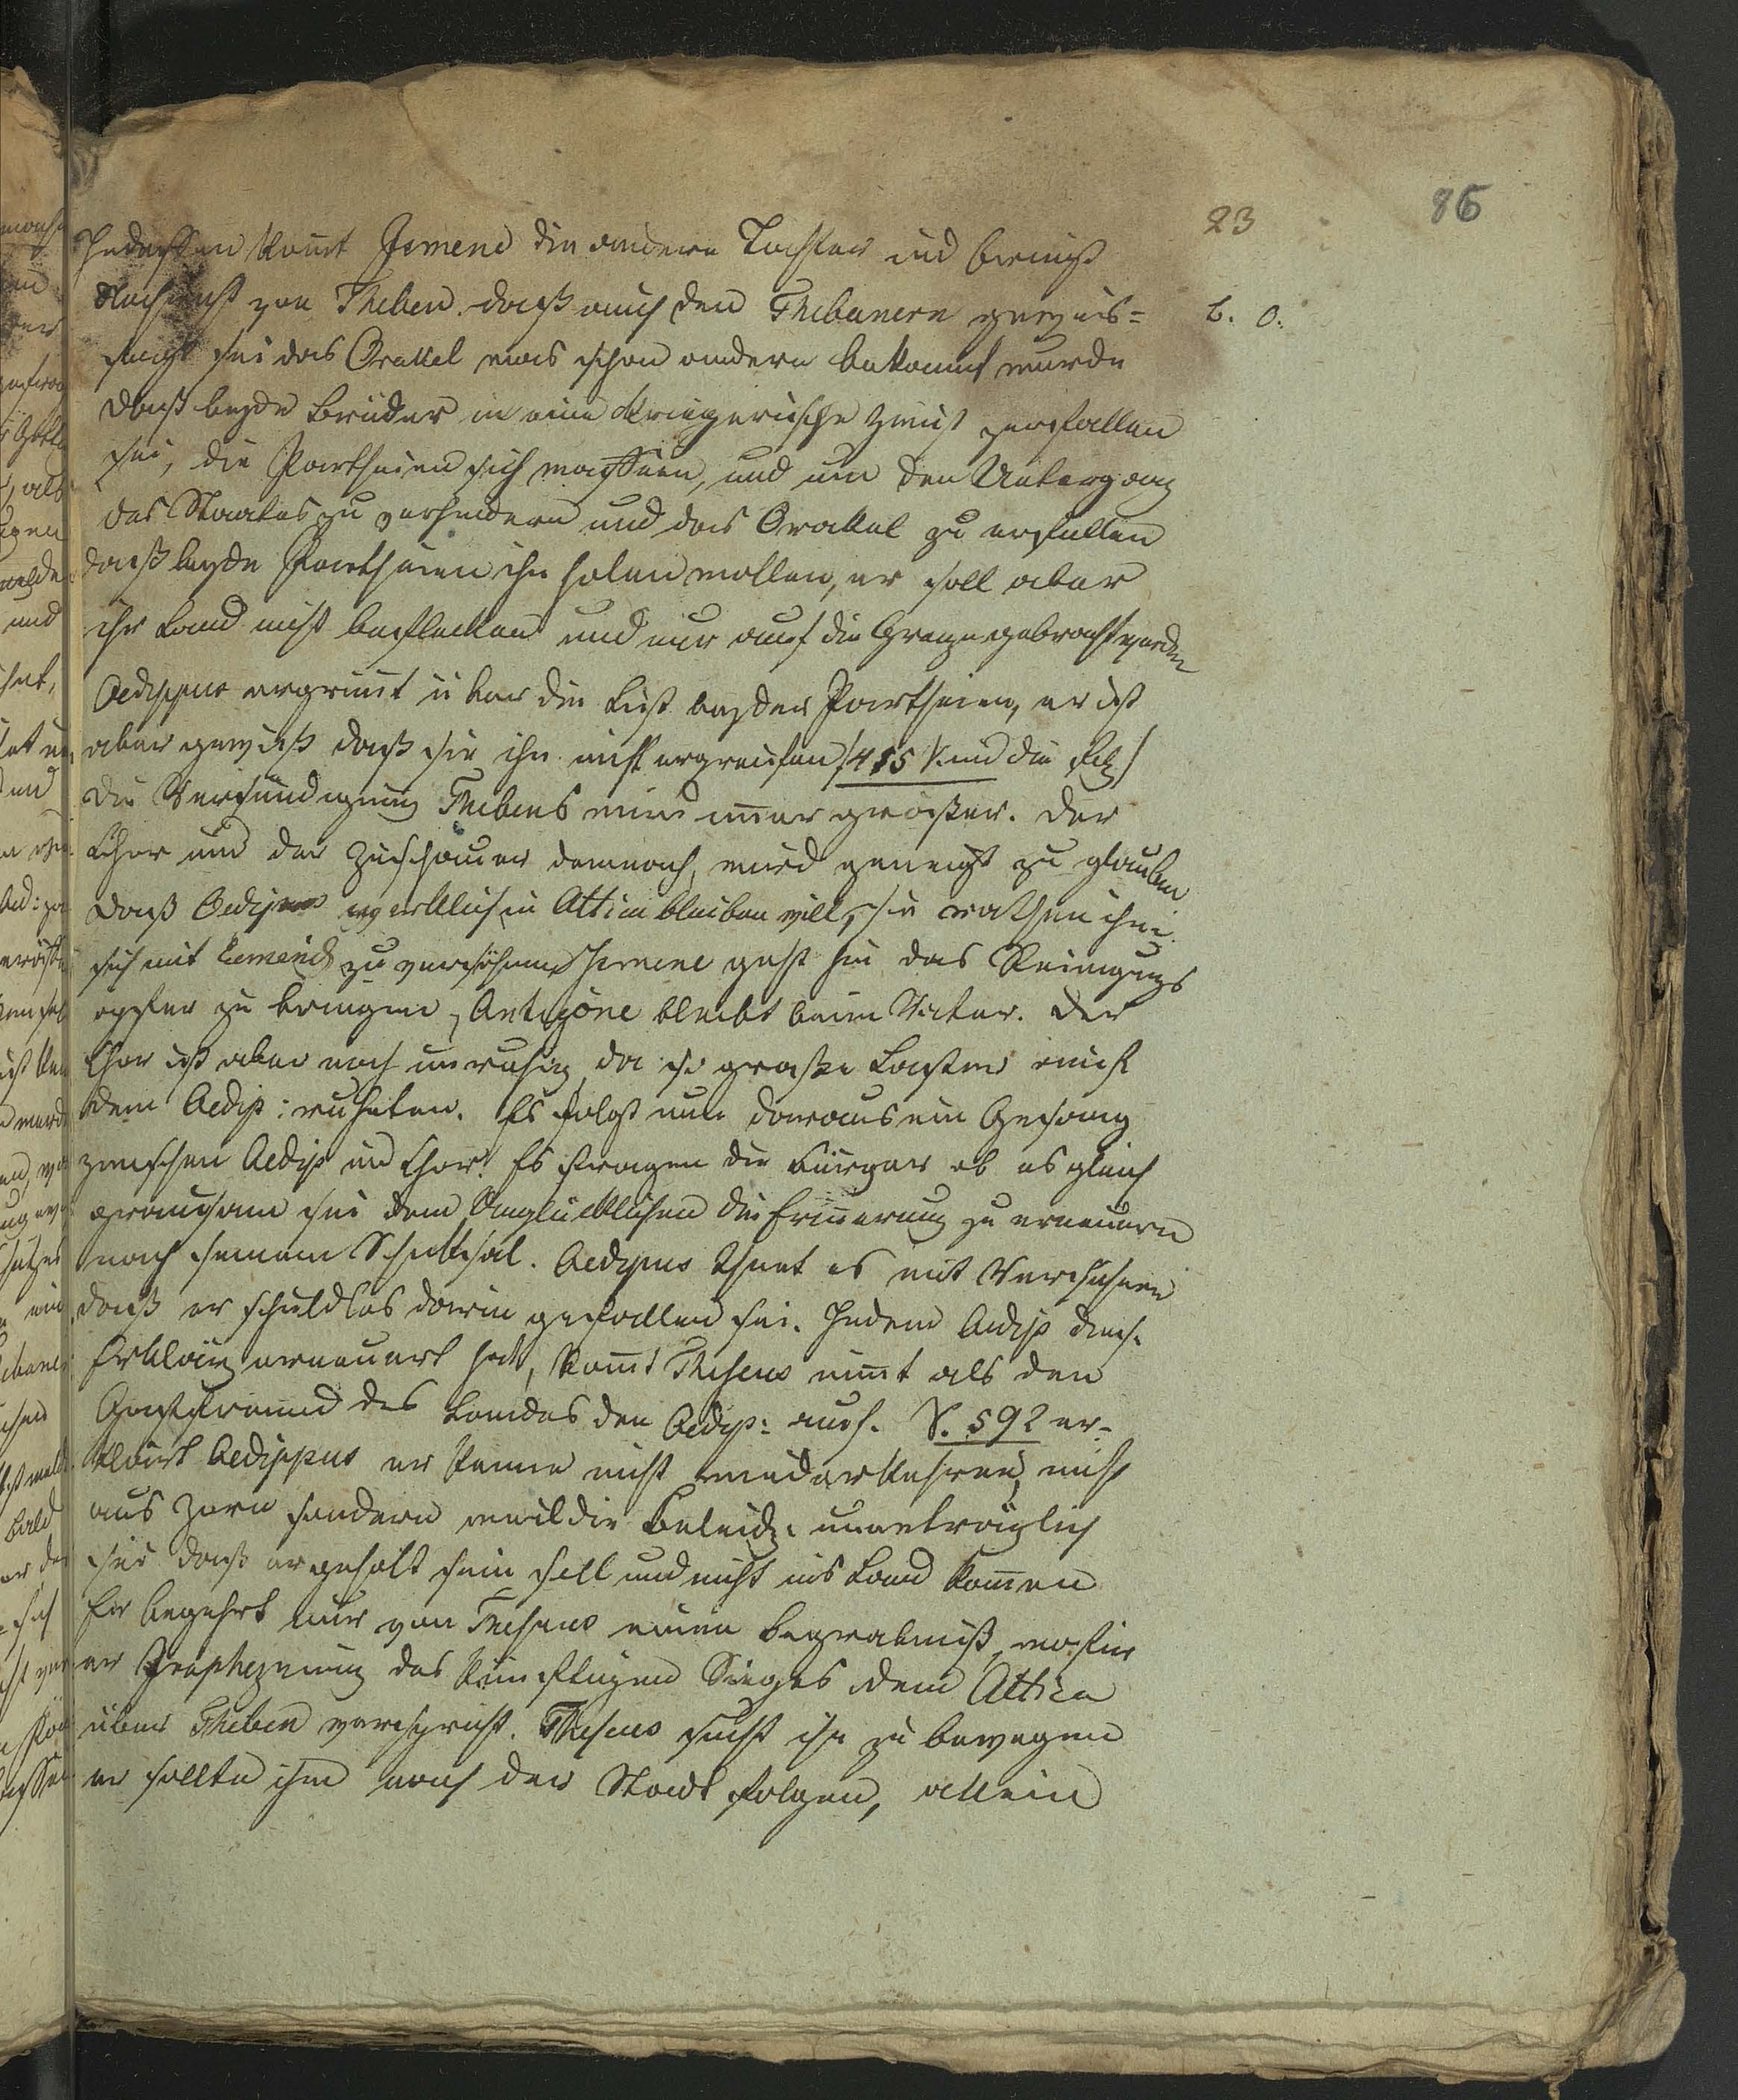 23
86
Indessen kom̄t Ismene die andere Tochter und bringt
Nachricht von Theben daß auch den Thebanern geweis=
sagt sei das Orakel was schon andern bekannt wurde
b. O:
Daß beyde Brüder in eine kriegerische Zwist zerfallen
sei, die Partheien sich waffnen, und um den Untergang
des Staates zu verhindern und das Orakel zu erfüllen
daß beyde Partheien ihn holen wollen, er soll aber
ihr Land nicht beflecken und nur auf die Grenze gebracht werden
Oedippus ergrim̄t über die List beyder Partheien, er ist
aber gewiß daß sie ihn nicht ergreifen /: 415 V. und die folg /
Die Versündigung Thebens wird im̄er größer. Der
Chor und der Zuschauer demnach, wird geneigt zu glauben
daß Oedipus wirklich in Attica bleiben will, sie rathen ihm
sich mit Eumenid zu versöhnen, Ismene geht hin das Reinigungs
opfer zu bringen, Antigone bleibt beim Vater. Der
Chor ist aber noch unruhig da so große Laster auf
dem Aedip: ruheten. Es folgt nun daraus ein Gesang
zwischen Aedip und Chor. Es fragen die Bürger ob es gleich
grausam sei dem Unglücklichen die Erin̄erung zu erneuern
nach seinem Schicksal. Aedipus thut es mit Versichern
daß er schuldlos darin gefallen sei. Indem Aedip diese
Erklärg erneuert hat, kom̄t Theseus nim̄t als den
Gastfreund des Landes den Aedip: auf. V. 592 er=
klärt Aedippus er kenne nicht wiederkehren, nicht
aus Zorn sondern weil die Beleidg. unerträglich
sei daß er geholt sein soll und nicht ins Land kom̄en
Er begehrt nur von Theseus einen Begräbniß, wofür
er Propheznung des künftigen Sieges dem Attica
über Theben verspricht. Theseus sucht ihn zu bewegen
er sollte ihm nach der Stadt folgen, allein